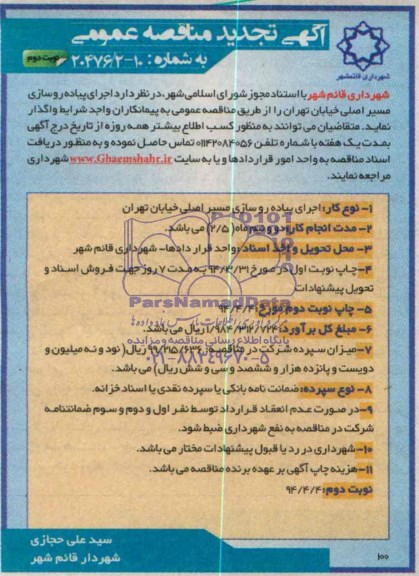 آگهی تجدید مناقصه عمومی
به شماره: ۱۰-۲۰۴۷۶/۲
نوبت دوم
شهرداری قائمشهر
شهرداری قائم شهر با استناد مجوز شورای اسلامی شهر، در نظر دارد اجرای پیاده رو سازی
مسیر اصلی خیابان تهران را از طریق مناقصه عمومی به پیمانکاران واجد شرایط واگذار
نماید. متقاضیان می توانند به منظور کسب اطلاع بیشتر همه روزه از تاریخ درج آگهی
بمدت یک هفته با شماره تلفن ۰۱۱۴۲۰۸۴۰۵۶ تماس حاصل نموده و به منظور دریافت
اسناد مناقصه به واحد امور قراردادها و یا به سایت www.Ghaemshahr.ir شهرداری
مراجعه نمایند.
۱- نوع کار: اجرای پیاده رو سازی مسیر اصلی خیابان تهران
۲- مدت انجام کار: دو و نیم ماه (۲/۵) می باشد.
۳- محل تحویل و اخذ اسناد: واحد قرار دادها- شهرداری قائم شهر
۴- چاپ نوبت اول در مورخ ۹۴/۳/۳۱ به مدت ۷ روز جهت فروش اسناد و
تحویل پیشنهادات
۵- چاپ نوبت دوم مورخ: ۹۴/۴/۴
۶- مبلغ کل برآورد: ریال می باشد.
۷- میزان سپرده شرکت در مناقصه: ۹۹/۲۱۵/۶۳۶ ریال( نود و نه میلیون و
دویست و پانزده هزار و ششصد و سی و شش ریال) می باشد.
۸- نوع سپرده: ضمانت نامه بانکی یا سپرده نقدی یا اسناد خزانه.
۹- در صورت عدم انعقاد قرارداد توسط نفر اول و دوم و سوم ضمانتنامه
شرکت در مناقصه به نفع شهرداری ضبط شود.
۱۰- شهرداری در رد یا قبول پیشنهادات مختار می باشد.
۱۱- هزینه چاپ آگهی بر عهده برنده مناقصه می باشد.
نوبت دوم: ۹۴/۴/۴
ParsNamadData
پایگاه اطلاع رسانی مناقصه و مزایده
۰۲۱-۸۸۳۴۹۶۷۰-۵
سید علی حجازی
شهردار قائم شهر
۱۰۰